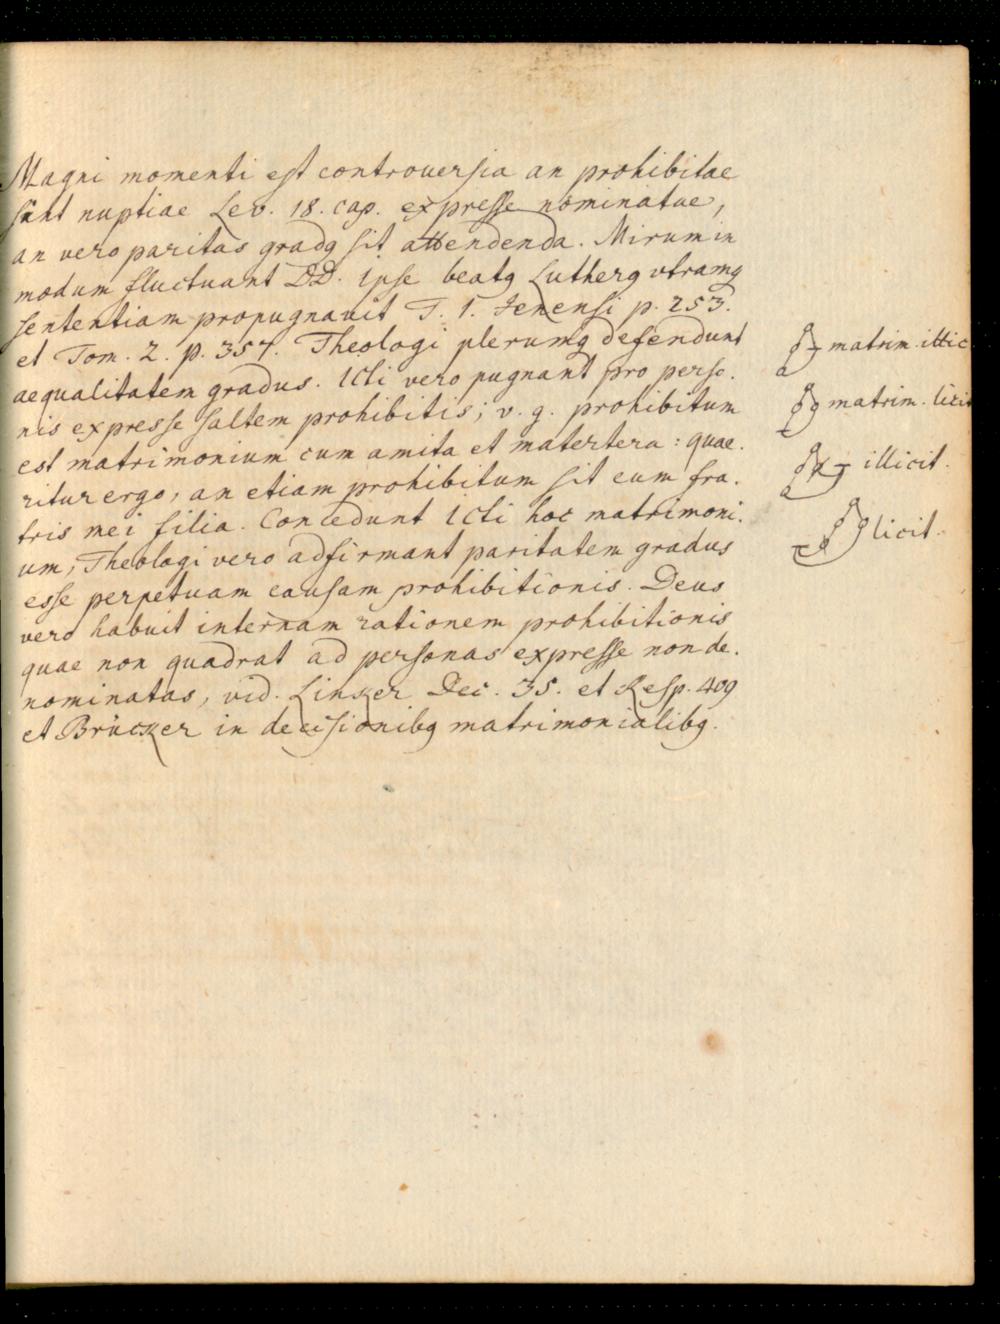 Magni momenti est controversia an prohibitae
sint nuptiae Lev. 18. cap. expresse nominatae,
an vero paritas gradq sit attendenda. Mirum in
modum fluctuant DD. ipse beatq Lutherq vtramq
sententiam propugnavit T. 1. Jenensi p. 253.
et Tom. 2. p. 357. Theologi plerumq defendunt
aequalitatem gradus. ICti vero pugnant pro perso.
nis expresse saltem prohibitis; v. g. prohibitum
est matrimonium cum amita et matertera: quae.
ritur ergo, an etiam prohibitum sit cum fra.
tris mei filia. Concedunt ICti hoc matrimoni.
um, Theologi vero adfirmant paritatem gradus
esse perpetuam causam prohibitionis. Deus
vero habuit internam rationem prohibitionis
quae non quadrat ad personas expresse non de.
nominatas, vid. Linker Dec. 35. et Resp. 409
et Brücker in decisionibq matrimonialibq.
matrim. illic
matrim. licit
illicit.
licit.